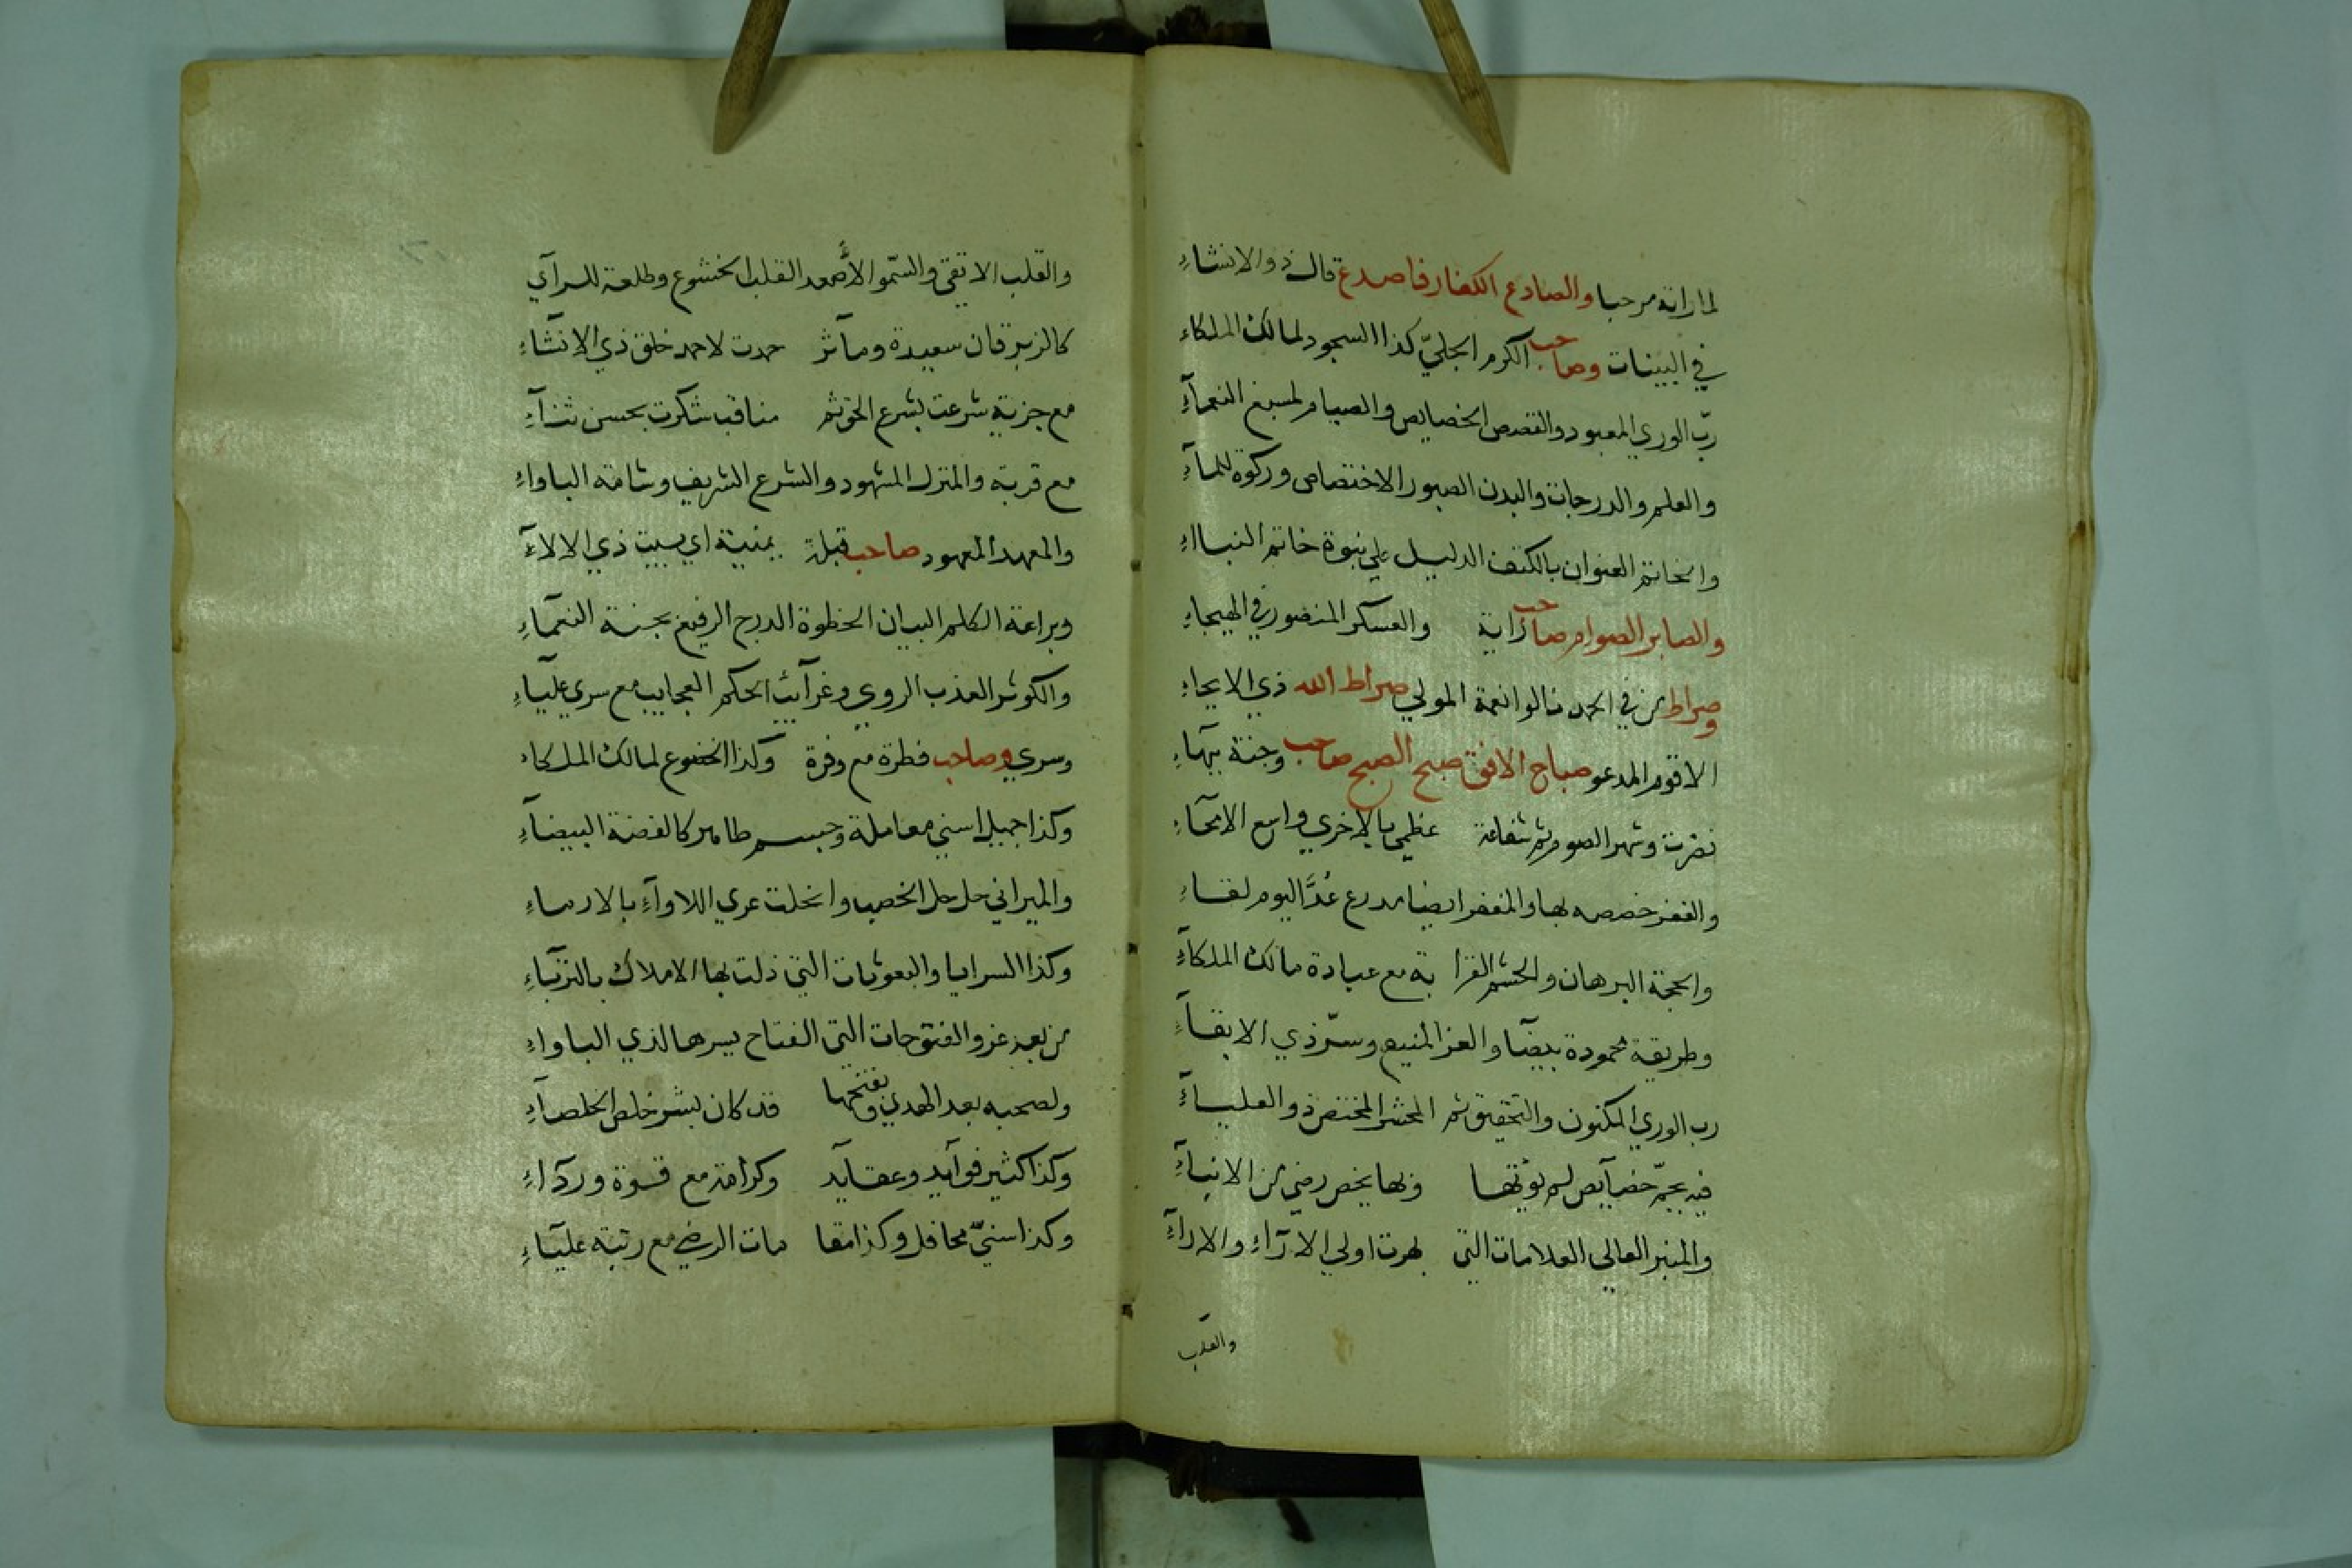 لما راته مرحبا والصادع الكفار فاصدع قال ذو الانشاء
في البينات وصاحب الكرم الجليّ كذا السجود لمالك الملكاء
ربّ الوري المعبود والقصص الخصايص والصيام لمسبغ النعمآء
والعلم والدرجات والبدن الصبور الاختصاص وركوة للمآء
والخاتم العنوان بالكتف الدليل علي نبوة خاتم النباء
والصابر الصوام صاحب راية والعسكر المنصور في الهيجاء
وصراط من في الحمد نالوا نعمة المولي صراط الله ذي الايحاء
الاقوم المدعو صباح الافق صبح الصبح صاحب وجنة بيهاء
نضرت وشهر الصوم ثم شفاعة عظمي بالاخري واسع الانحآء
والفقر خصصه بها والمغفر ايضا مدرع غدًّا اليوم لقاء
والحجة البرهان والحشم القرا بة مع عبادة مالك الملكآء
وطريقة محمودة بيضآ والعز المنيع وسرّ ذي الابقآء
رب الوري المكنون والتحقيق ثم المحشر المختص ذو العليآء
فيه بجمّ خصآيص لم يؤتها وبها يخص رضي من الانبيآء
والمنبر العالي العلامات التي بهرت اولي الارآء والارآء
والقلب
والقلب الاتقي والسّمو الأصعد القلب الخشوع وطلعة للرآي
كالزبرقان سعيدة ومآثر حمدت لاحمد خلق ذي الانشآء
مع جزية شرعت بشرع الحق ثم مناقب شكرت بحسن ثنآء
مع قربة والمنزل المشهود والشرع الشريف وشامة الباواء
والمعهد المعهود صاحب قبلة بمنية اي بيت ذي الالآء
وبراعة الكلم البيان الحظوة الدرج الرفيع بجنة النعمآء
والكوثر العذب الروي وغرآئب الحكم العجايب مع سري عليآء
وسري وصاحب فطرة مع وفرة وكذا الخضوع لمالك الملكاء
وكذا جميل اسني معاملة وجسم طاهر كالفضة البيضآء
والمير اني حل حل الخصب وانحلت عري اللاوآء بالارماء
وكذا السرايا والبعوثات التي ذلت بها الاملاك بالزبآء
من بعد غزو الفتوحات التي الفتاح يسرها لذي الباواء
ولصحبه بعد الهدي وبفتحها قد كان بشر خلص الخلصآء
وكذا كثير فوآيد وعقآيد وكرامة مع قسوة وردآء
وكذا سنيّ محافل وكذا مقا مات الرضي مع رتبة عليآء